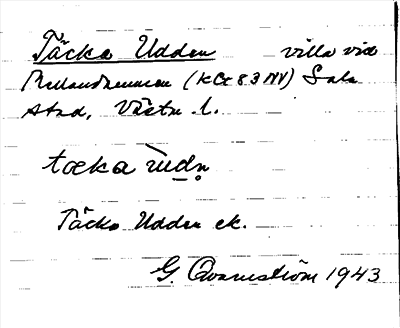 Täcka Udden villa vid
Mellandammen (KCt 83 NV) Sala
stad, Västm. l.
tæka ɯdn̥
Täcka Udden ek.
G. Qvarnström 1943